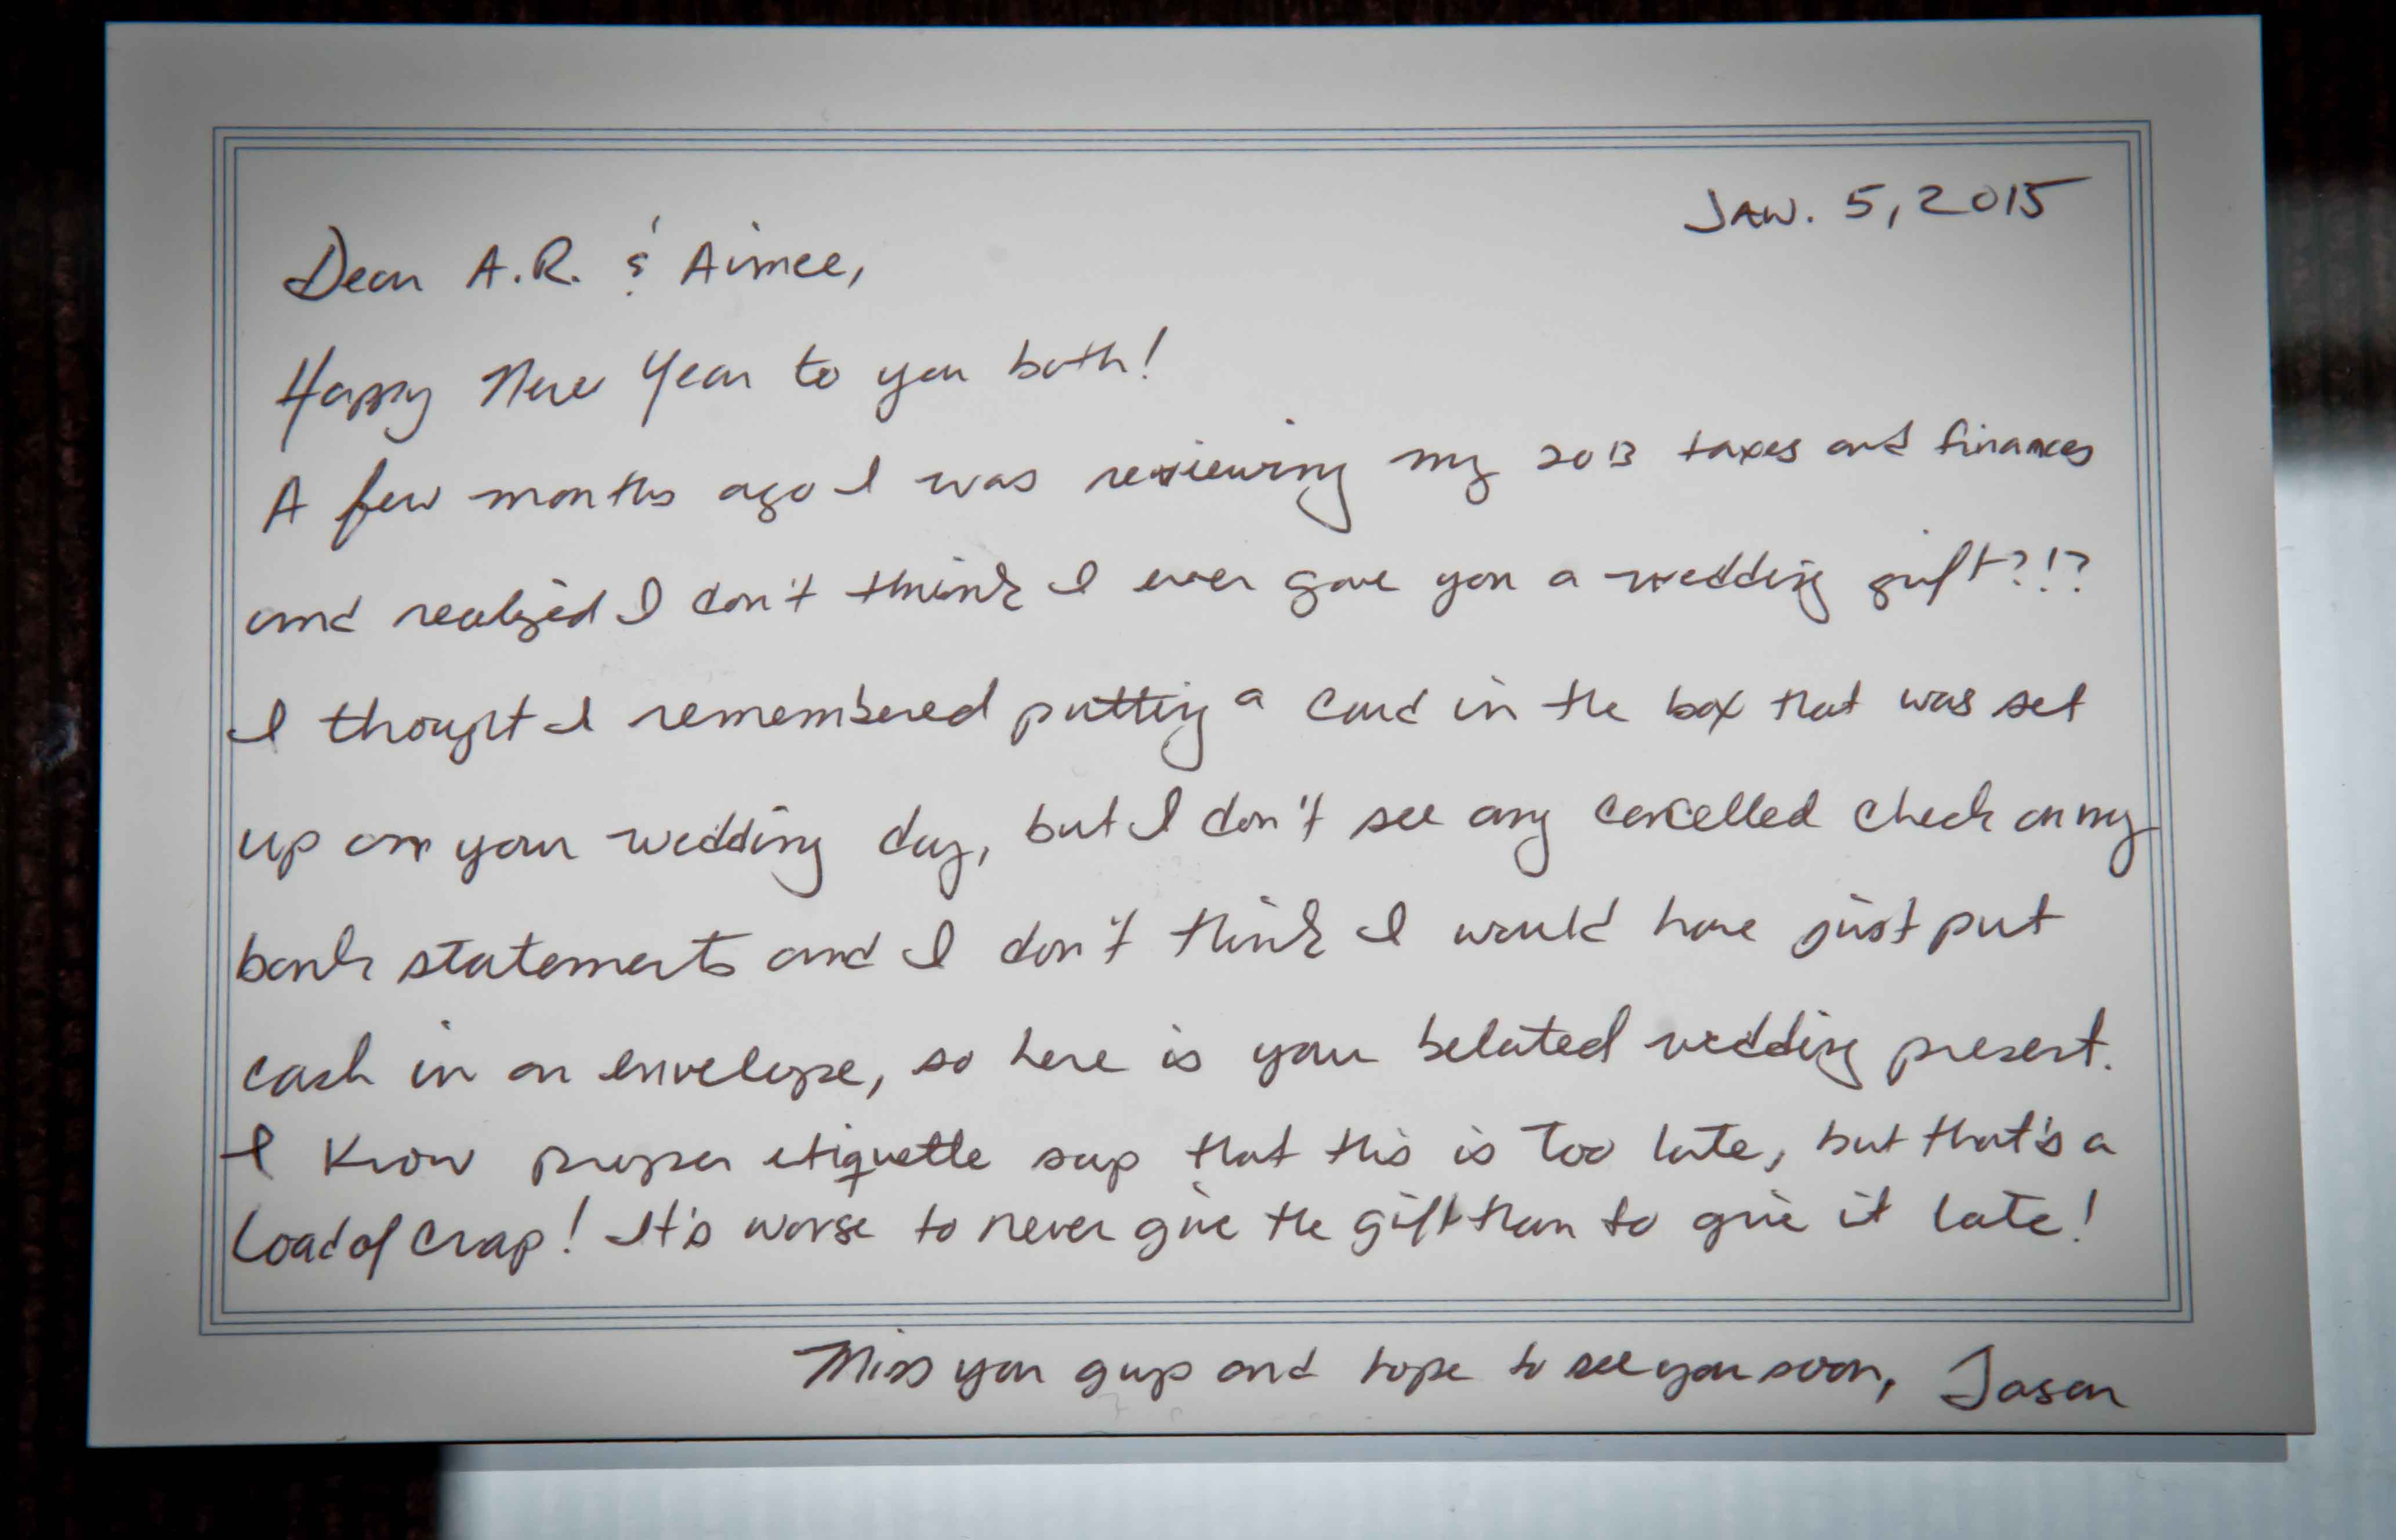 JAN. 5, 2015
Dear A.R. & Aimee,
Happy New Year to you both!
A few months ago I was reviewing my 2013 taxes and finances
and realized I don't think I ever gave you a wedding gift?!?
I thought I remembered putting a card in the box that was set
up on your wedding day, but I don't see any cancelled check on my
bank statements and I don't think I would have just put
cash in an envelope, so here is your belated wedding present.
I know proper etiquette says that this is too late, but that's a
load of crap! It's worse to never give the gift than to give it late!
Miss you guys and hope to see you soon, Jason